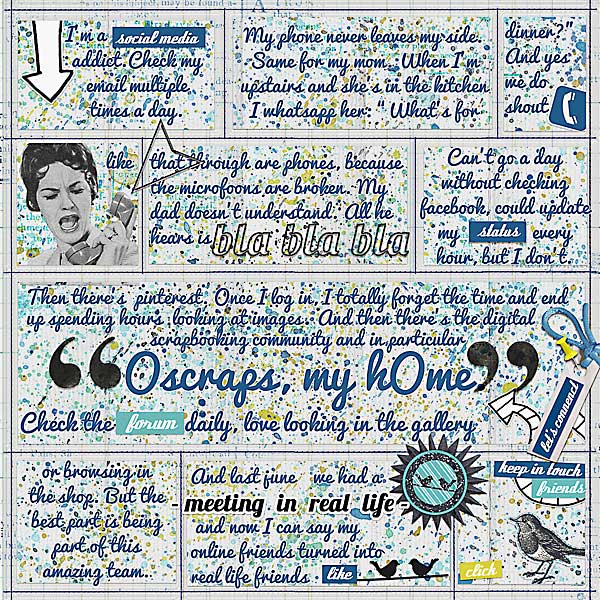 I'm a social media
addict. Check my
email multiple
times a day.
My phone never leaves my side.
Same for my mom. When I'm
upstairs and she's in the kitchen
I whatsapp her: " What's for
dinner?"
And yes
we do
shout
like that through are phones, because
the microfoons are broken. My
dad doesn't understand. All he
hears is bla bla bla
Can't go a day
without checking
facebook, could update
my status every
hour, but I don't.
Then there's pinterest. Once I log in, I totally forget the time and end
up spending hours looking at images.. And then there's the digital
scrapbooking community and in particular
“ Oscraps, my hOme ”
Check the forum daily, love looking in the gallery
let's connect
or browsing in
the shop. But the
best part is being
part of this
amazing team..
And last june we had a
- meeting in real life -
and now I can say my
online friends turned into
real life friends like
keep in touch
friends
click